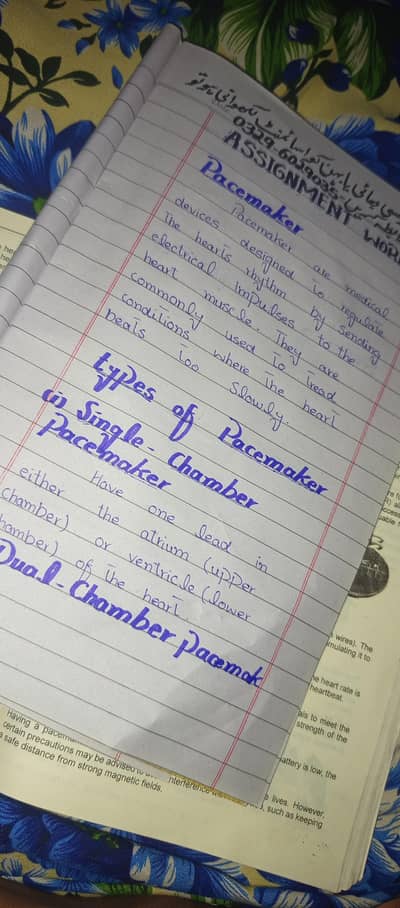 ASSIGNMENT WORK
Pacemaker
Pacemaker are medical
devices designed to regulate
The hearts rhythm by sending
electrical impulses to the
heart muscle. They are
commonly used to Tread
conditions where The heart
beats Too Slowly.
types of Pacemaker
(i) Single-Chamber
Pacemaker
Have one lead in
either the atrium (upper
Chamber) or ventricle (lower
hamber) of The heart.
Dual-Chamber Pacemak
wires). The
mulating it to
he heart rate is
heartbeat.
als to meet the
strength of the
attery is low, the
Having a pacem
certain precautions may be advised
interference
e lives. However,
, such as keeping
safe distance from strong magnetic fields.